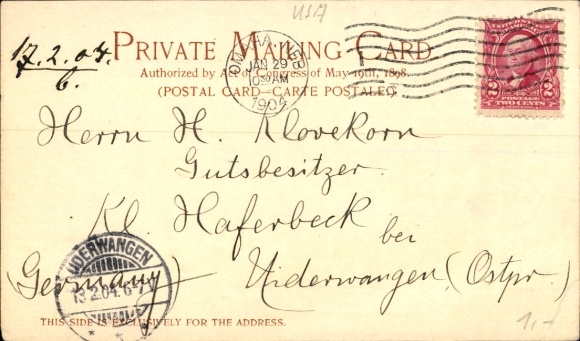 USA
17.2.04.
6.
PRIVATE MAILING CARD
Authorized by Act of Congress of May 19th, 1898.
(POSTAL CARD—CARTE POSTALE)
OMAHA NEB
JAN 29
10 30 AM
1904
POSTAGE
2 TWO CENTS 2
Herrn H. Klovekorn
Gutsbesitzer
Kl. Haferbeck
bei
(Germany) Uderwangen (Ostpr.)
UDERWANGEN
13.2.04.
THIS SIDE IS EXCLUSIVELY FOR THE ADDRESS.
1,-